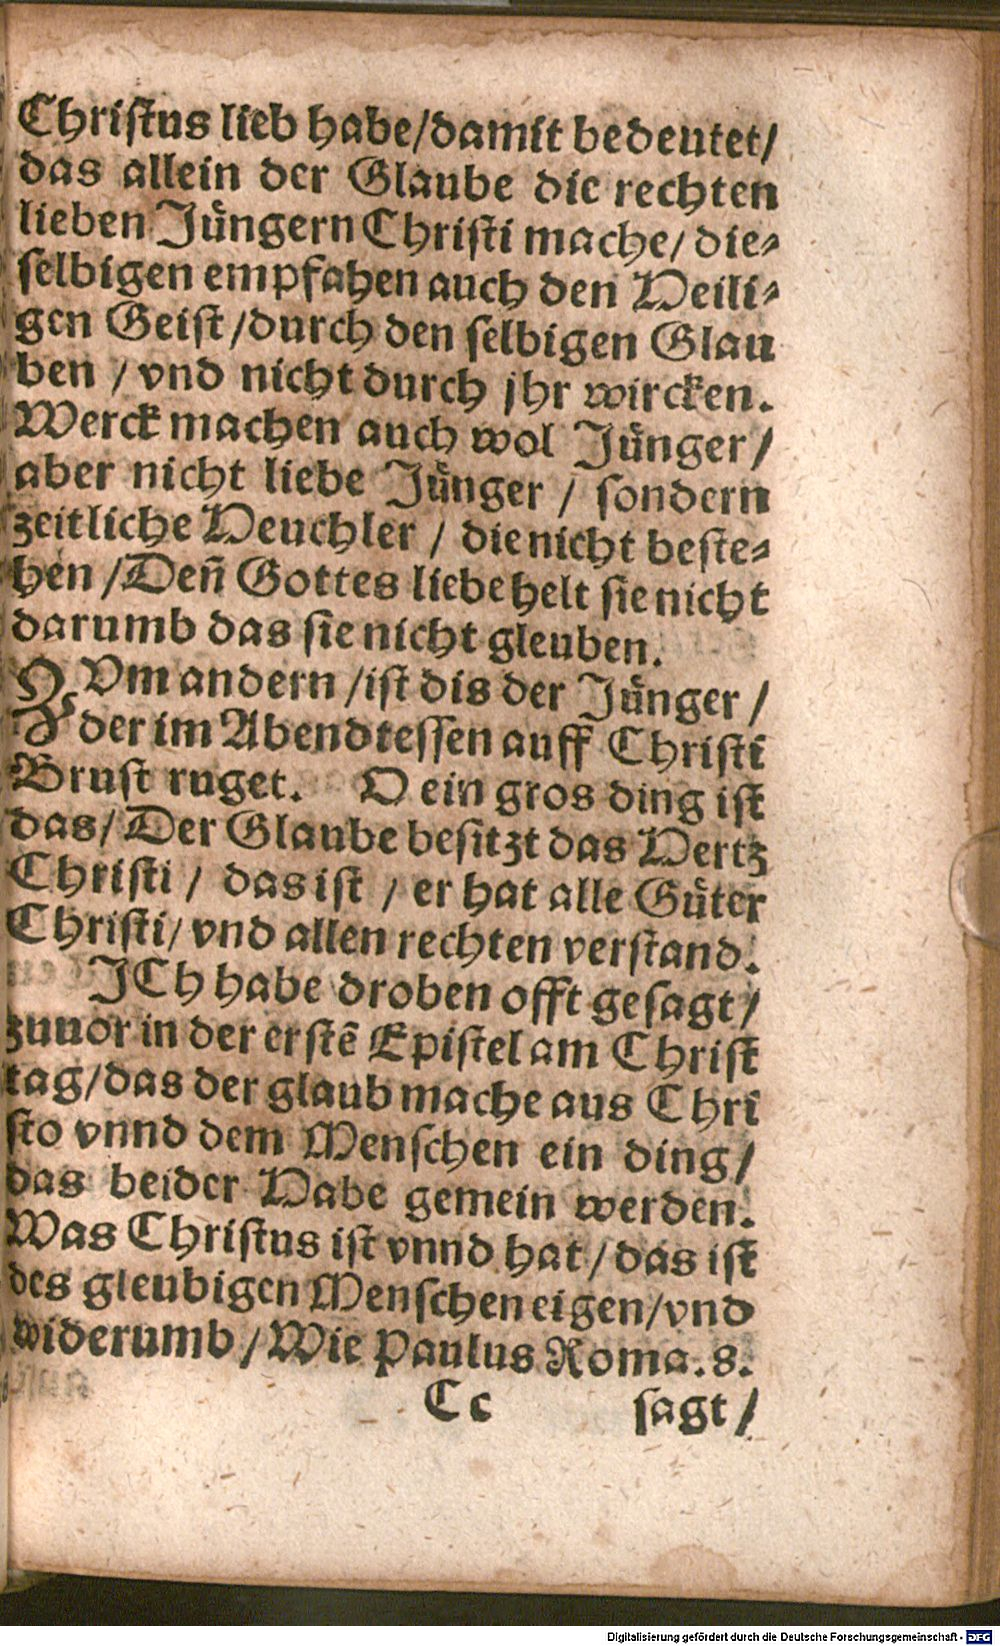 Christus lieb habe/damit bedeutet/
das allein der Glaube die rechten
lieben Jüngern Christi mache/ die⸗
selbigen empfahen auch den Heili⸗
gen Geist/durch den selbigen Glau
ben / vnd nicht durch jhr wircken.
Werck machen auch wol Jünger/
aber nicht liebe Jünger / sondern
zeitliche Heuchler / die nicht beste⸗
hen/Deñ Gottes liebe helt sie nicht
darumb das sie nicht gleuben.
ZVm andern/ist dis der Jünger/
der im Abendtessen auff Christi
Brust ruget. O ein gros ding ist
das/ Der Glaube besitzt das Hertz
Christi / das ist / er hat alle Güter
Christi/ vnd allen rechten verstand.
JCh habe droben offt gesagt/
zuuor in der erstē Epistel am Christ
tag/das der glaub mache aus Chri
sto vnnd dem Menschen ein ding/
das beider Habe gemein werden.
Was Christus ist vnnd hat/das ist
des gleubigen Menschen eigen/vnd
widerumb/Wie Paulus Roma.8.
Cc sagt/
Digitalisierung gefördert durch die Deutsche Forschungsgemeinschaft - DFG